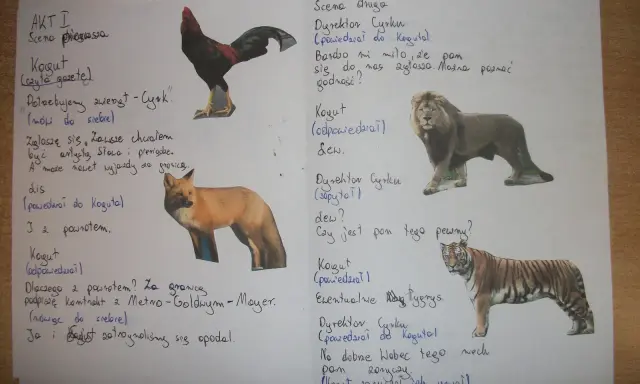 AKT I
Scena pierwsza
Kogut
(czyta gazetę)
"Potrzebujemy zwierząt - Cyrk"
(mówi do siebie)
Zgłoszę się. Zawsze chciałem
być artystą. Sława i pieniądze.
A może nawet wyjazdy za granicę.
Lis
(powiedział do Koguta)
I z powrotem.
Kogut
(odpowiedział)
Dlaczego z powrotem? Za granicą
podpiszę kontrakt z Metro-Goldwym-Mayer.
(mówiąc do siebie)
Ja i zatrzymaliśmy się opodal.
Scena druga
Dyrektor Cyrku
(powiedział do Koguta)
Bardzo mi miło, że pan
się do nas zgłasza. Można poznać
godność?
Kogut
(odpowiedział)
Lew.
Dyrektor Cyrku
(zapytał)
Lew?
Czy jest pan tego pewny?
Kogut
(powiedział)
Ewentualnie tygrys.
Dyrektor Cyrku
(powiedział do Koguta)
No dobrze. Wobec tego niech
pan zaryczy.